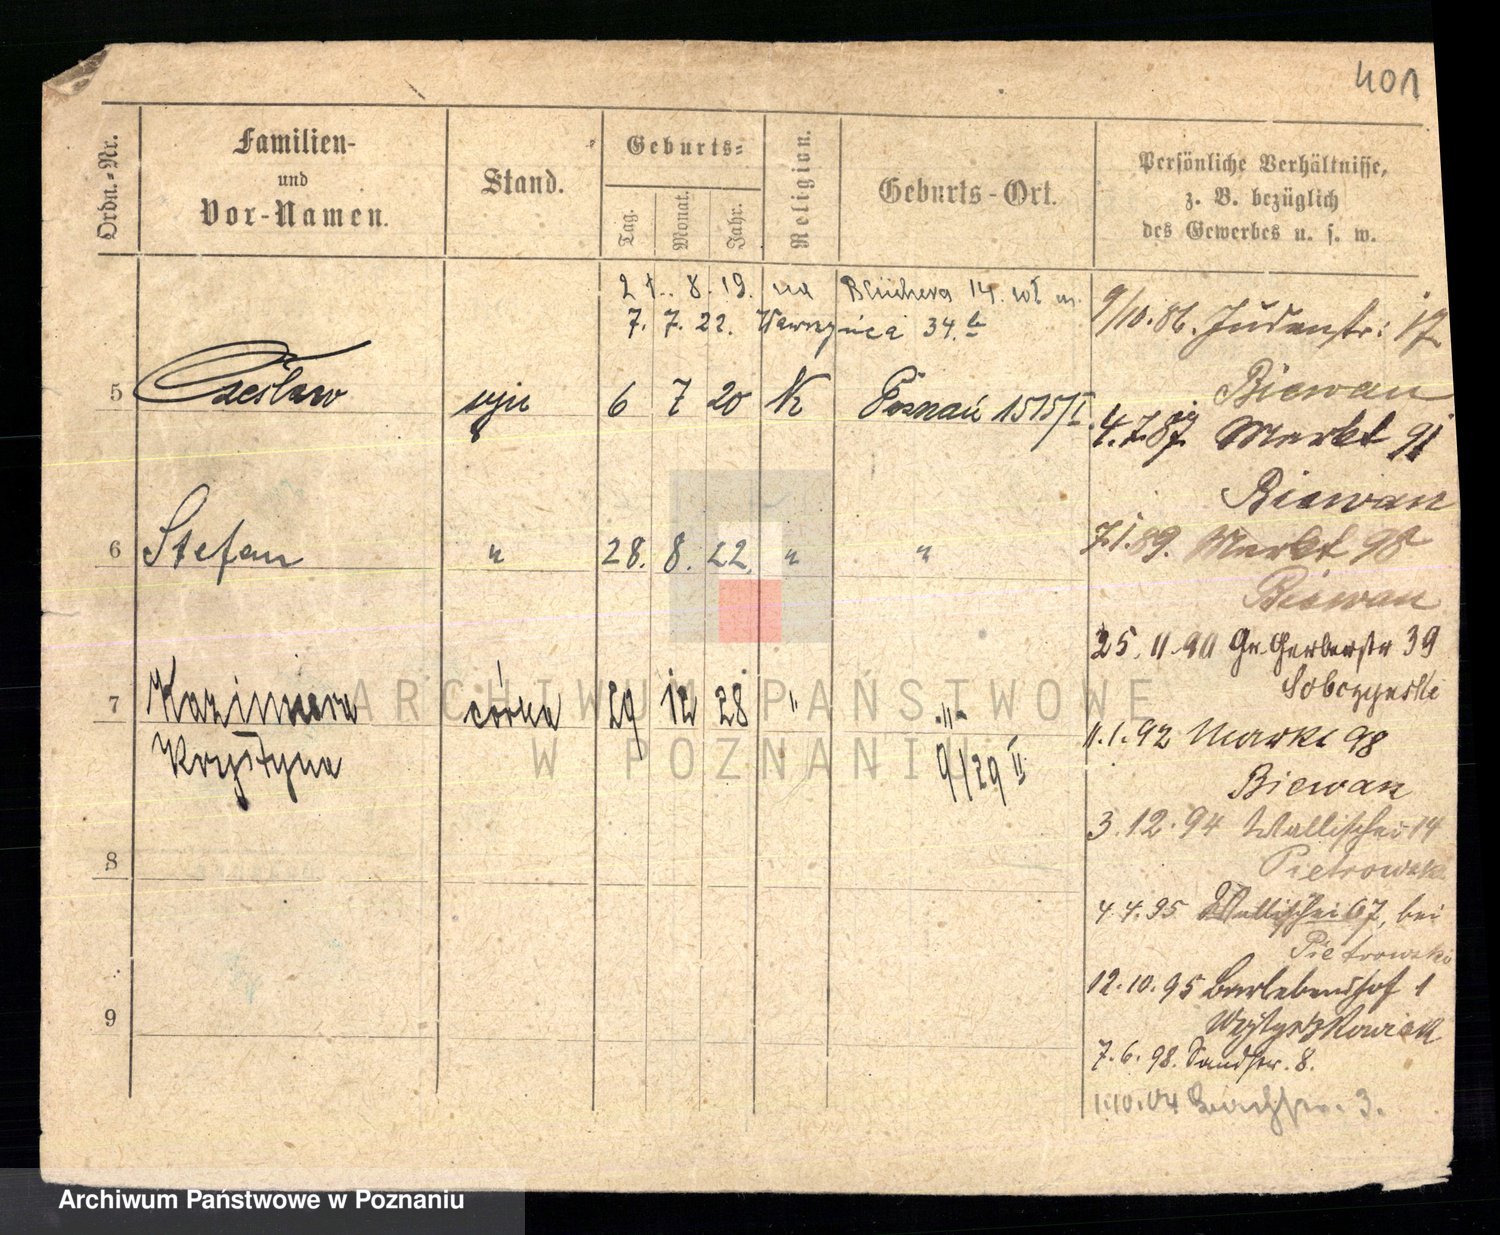 401
Ordn.-Nr.
Familien-
und
Vor-Namen.
Stand.
Geburts-
Tag.
Monat.
Jahr.
Religion.
Geburts-Ort.
Persönliche Verhältnisse,
z. B. bezüglich
des Gewerbes u. s. w.
21. 8. 19. na Blüchera 14.
7. 7. 22. Wawrzyńca 34.
5 Czesław syn 6 7 20 K Poznań 1515/I
6 Stefan " 28. 8. 22. " "
7 Kazimiera córka 29 12 28 " -"-
Krystyna 9/29 II
8
9
9/10.86. Judenstr: 17
Biewan
4.7.87. Markt 91
Biewan
7.1.89. Markt 98
Biewan
25.11.90 Gr. Gerberstr 39
Sobczynski
11.1.92 Markt 98
Biewan
3.12.94 Wallischei 14
Pietrowski
4.4.95 Wallischei 67, bei
Pietrowski
12.10.95 Barlebenshof 1
7.6.98. Sandstr. 8.
1.10.04 3.
ARCHIWUM PAŃSTWOWE
W POZNANIU
Archiwum Państwowe w Poznaniu